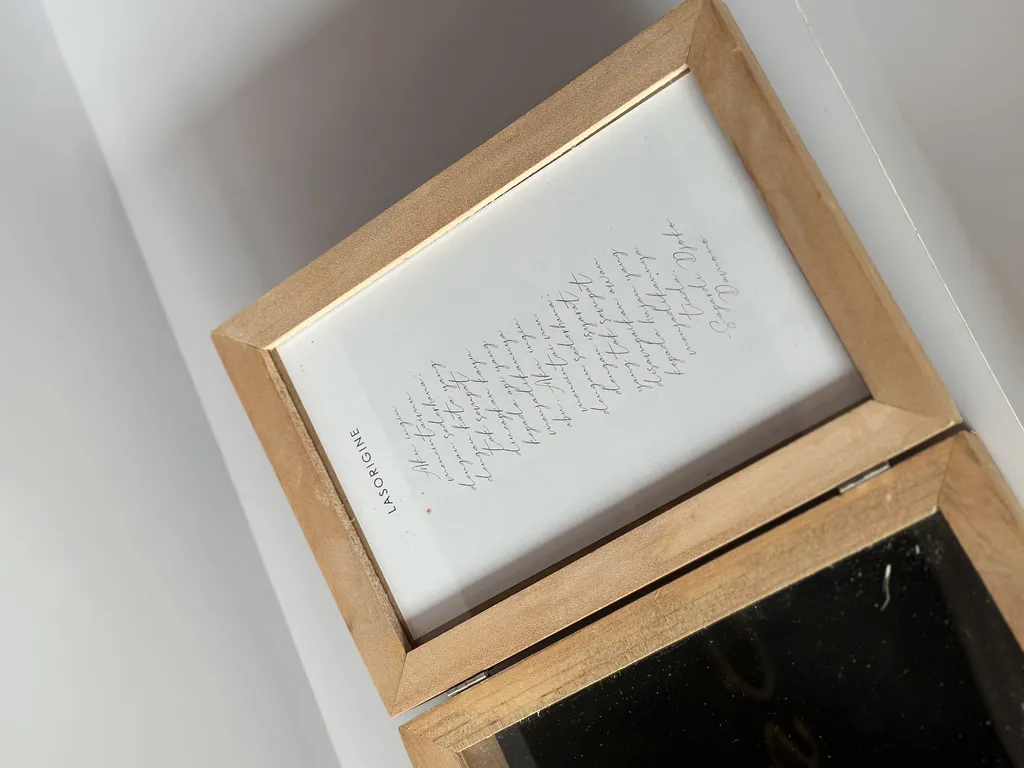 LASORIGINE
"Aku ingin
mencintaimu
dengan sederhana:
dengan kata yang
tak sempat
diucapkan kayu
kepada api yang
menjadikannya
abu. Aku ingin
mencintaimu
dengan sederhana:
dengan isyarat
yang tak sempat
disampaikan awan
kepada hujan yang
menjadikannya
tiada."
Sapardi Djoko
Damono